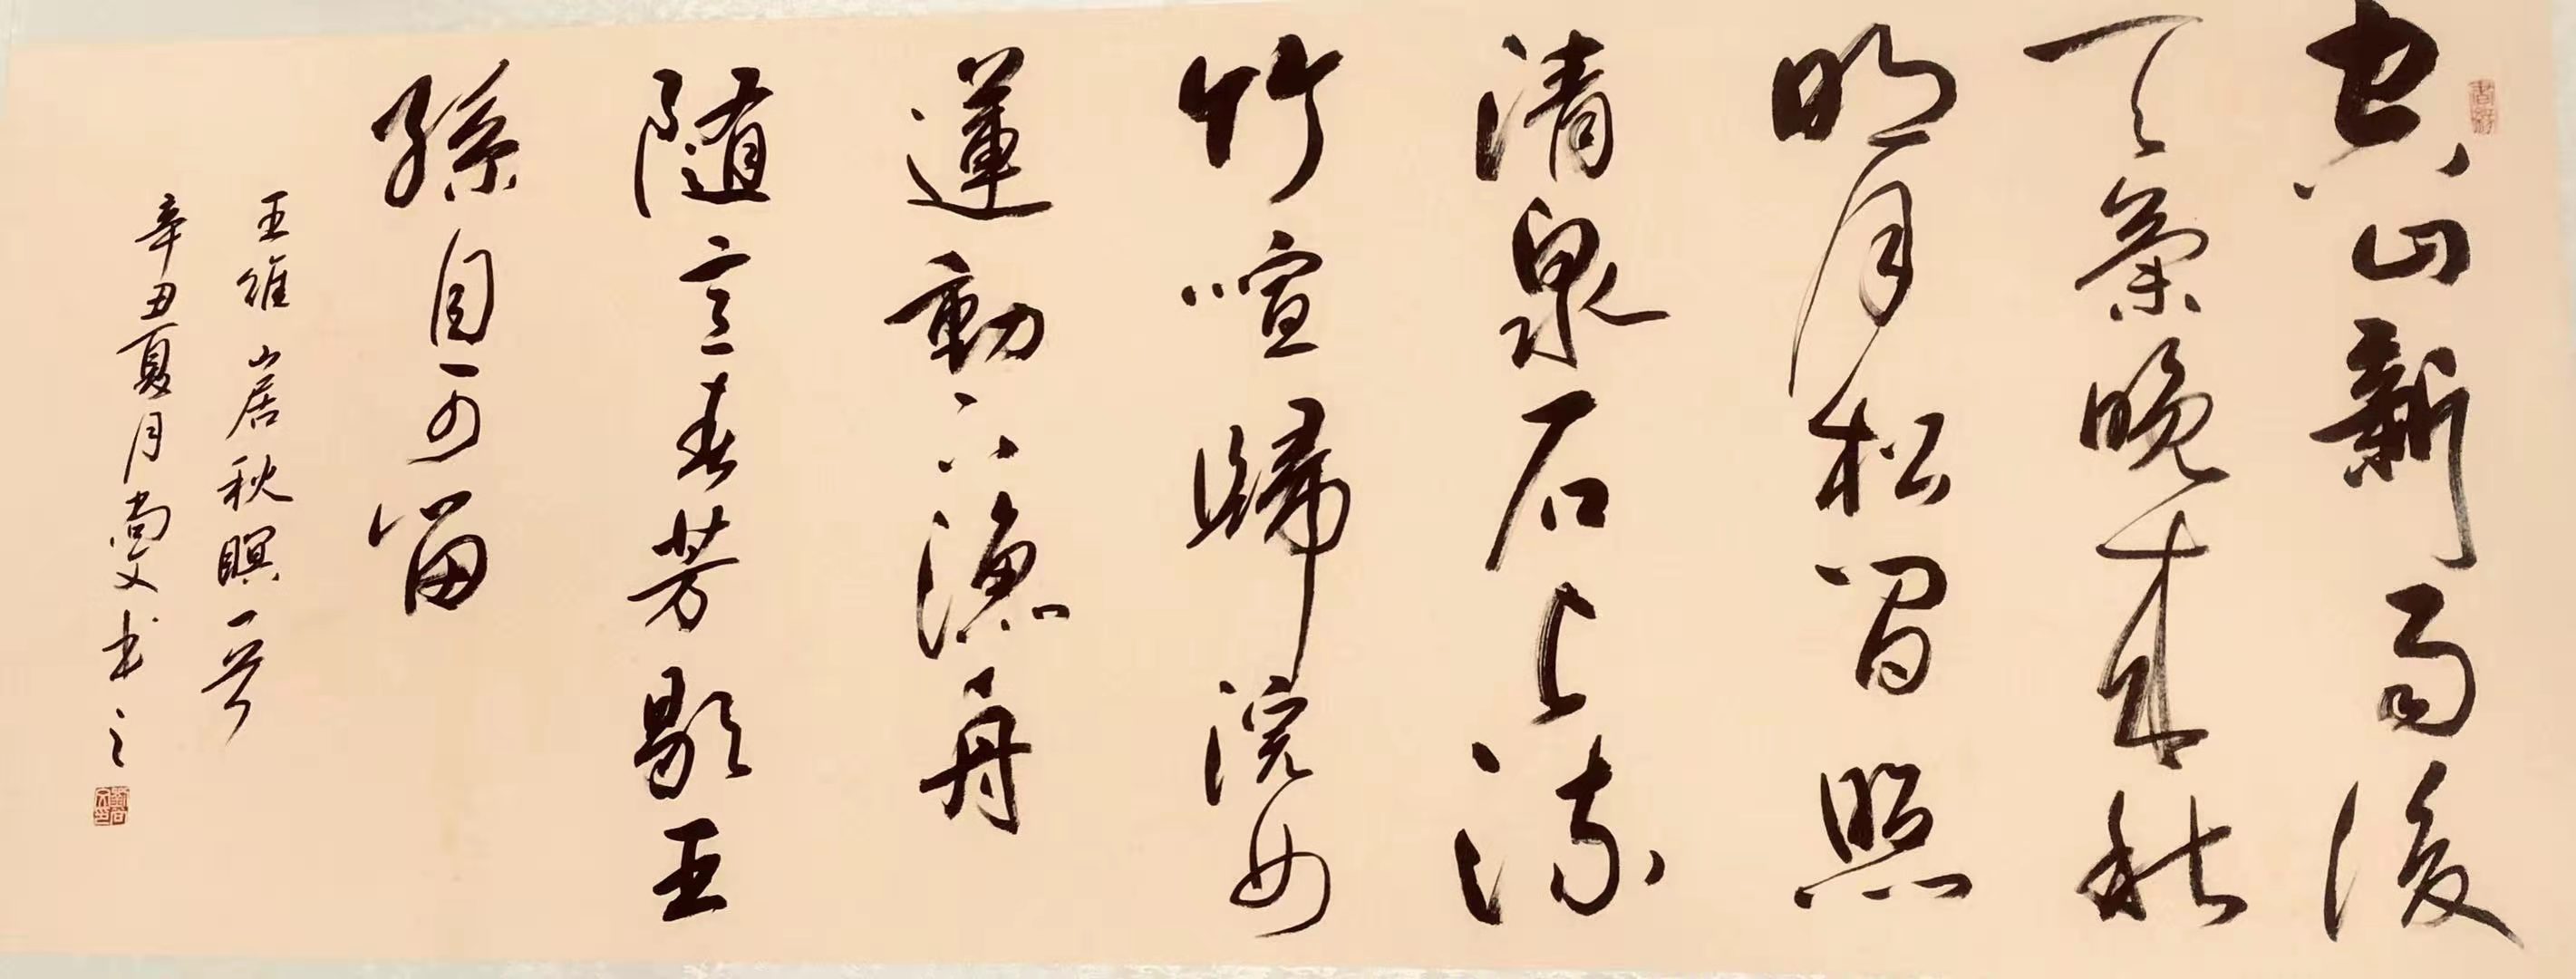 空山新雨後
天氣晚來秋
明月松間照
清泉石上流
竹喧歸浣女
蓮動下漁舟
随意春芳歇王
孫自可留
王維山居秋瞑一首
辛丑夏月尚文书之